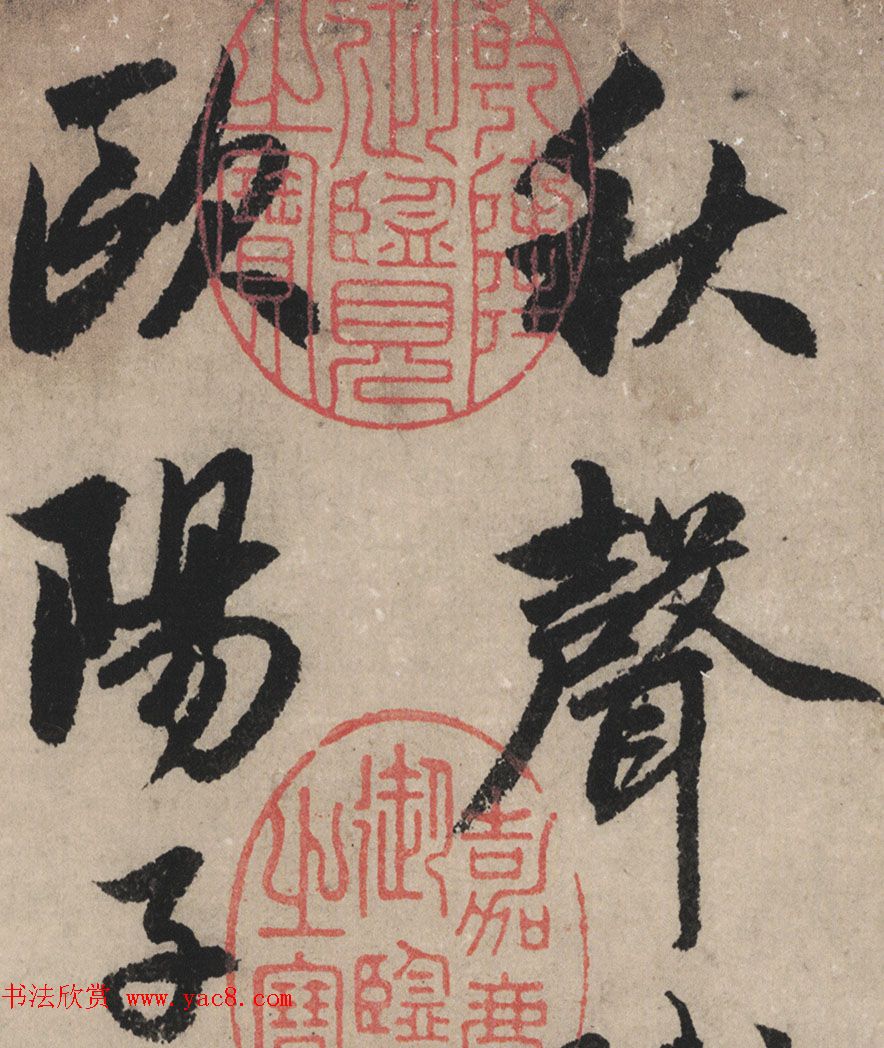 秋聲賦
歐陽子
乾隆御覽之寶
嘉慶御覽之寶
书法欣赏 www.yac8.com